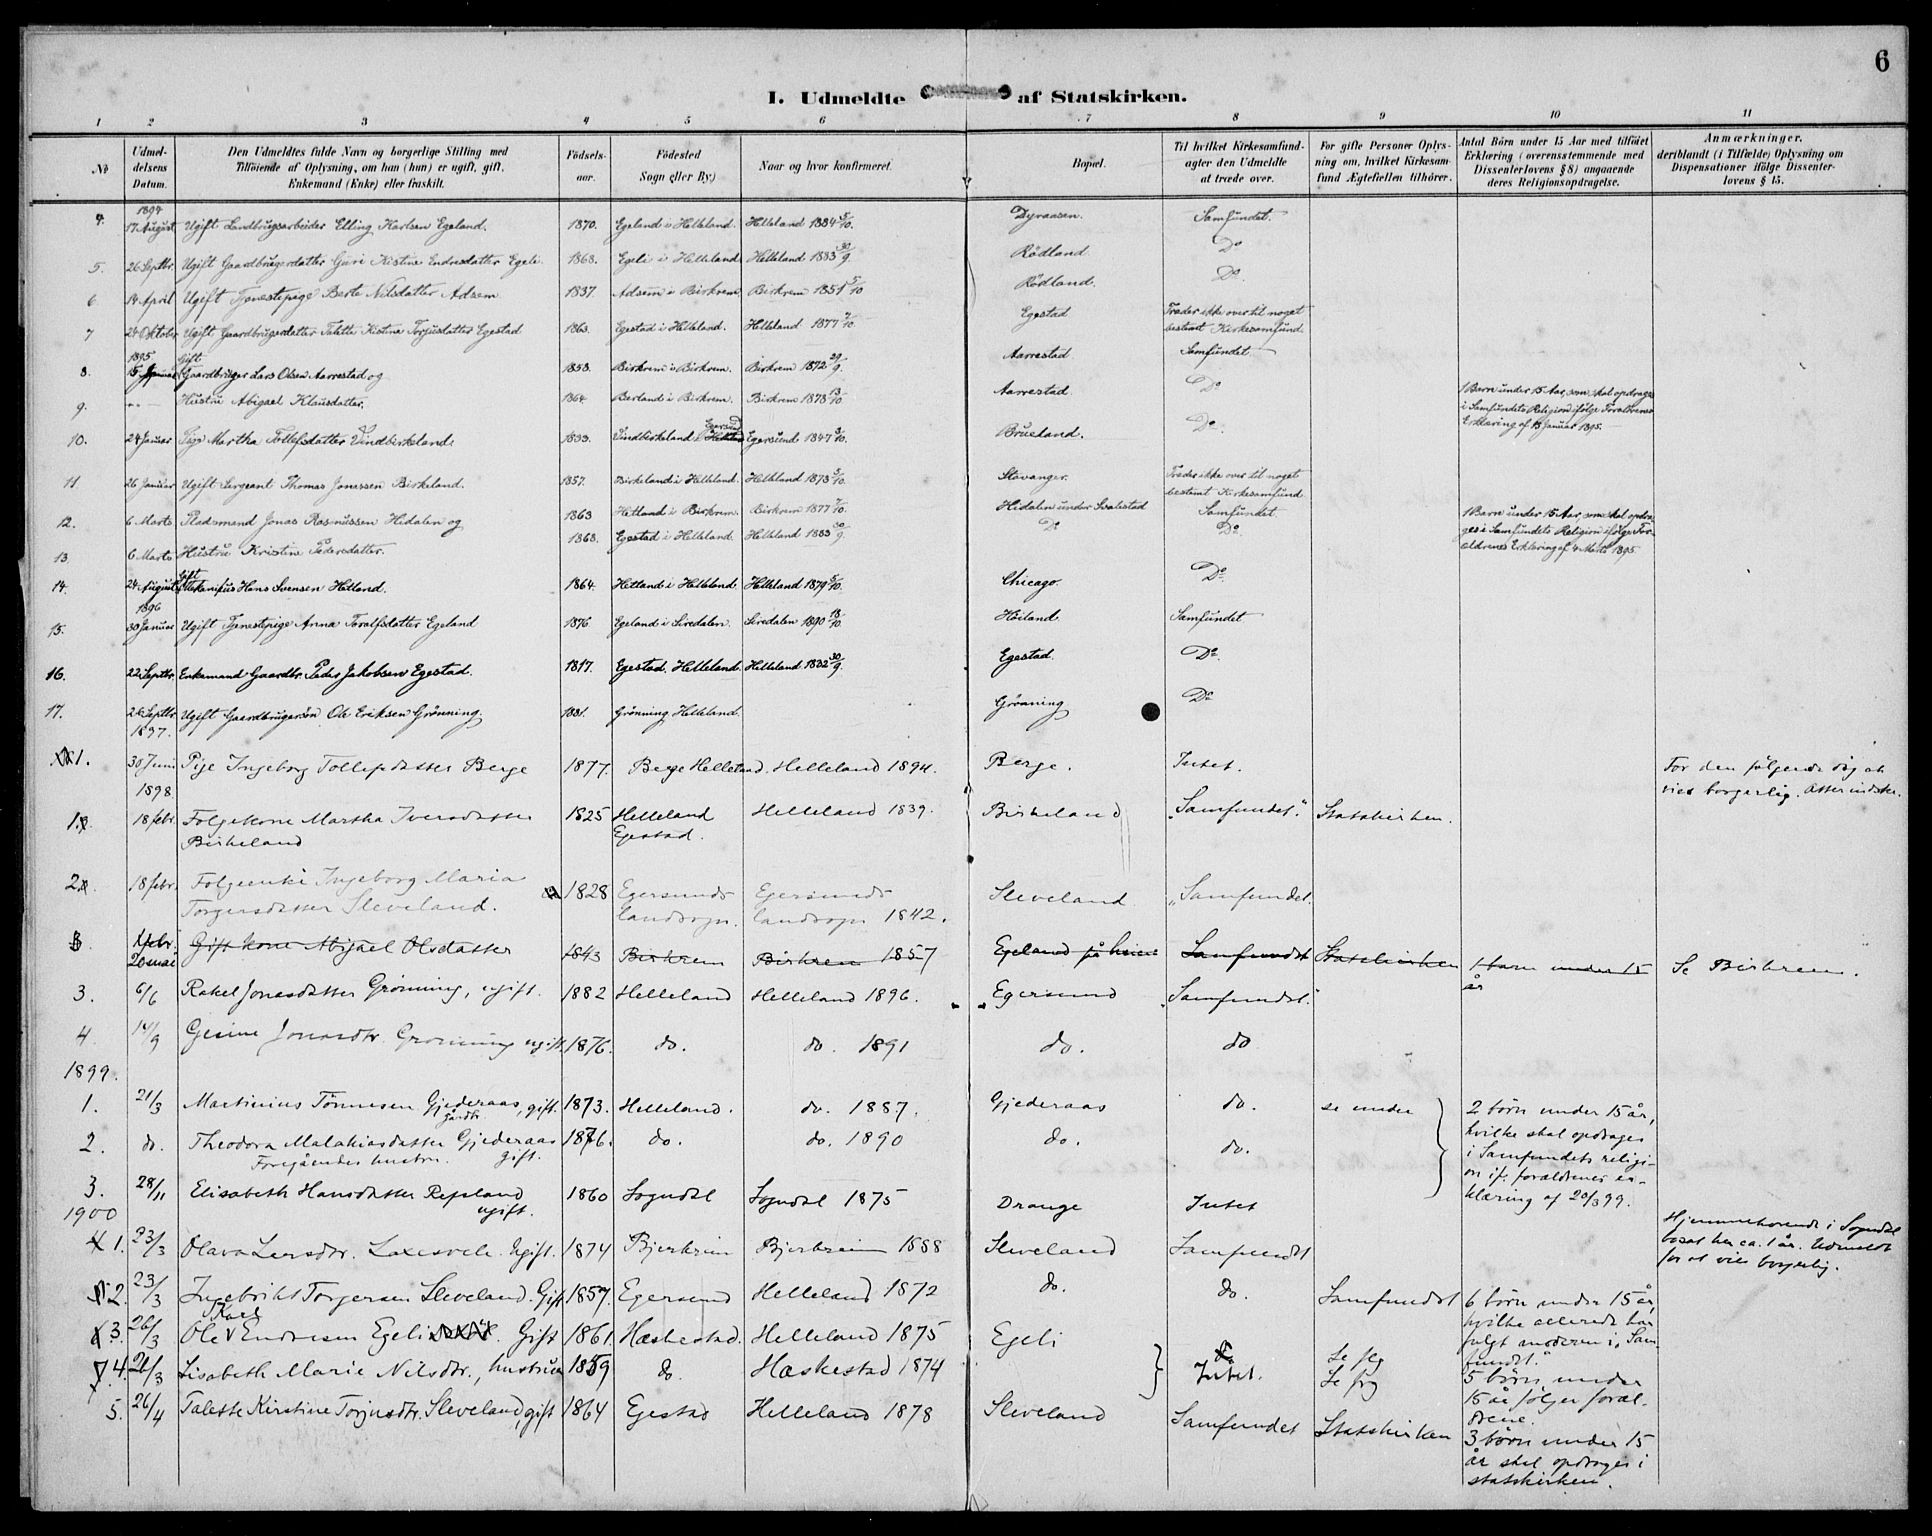 6
I. Udmeldte af Statskirken.
1 2 3 4 5 6 7 8 9 10 11
No
Udmel-
delsens
Datum.
Den Udmeldtes fulde Navn og borgerlige Stilling med
Tilføiende af Oplysning, om han (hun) er ugift, gift,
Enkemand (Enke) eller fraskilt.
Fødsels-
aar.
Fødested
Sogn eller By.)
Naar og hvor konfirmeret.
Bopæl.
Til hvilket Kirkesamfund-
agter den Udmeldte
at træde over.
For gifte Personer Oplys-
ning om, hvilket Kirkesam-
fund Ægtefællen tilhører.
Antal Børn under 15 Aar med tilføiet
Erklæring (overensstemmende med
Dissenterlovens § 8) angaaende
deres Religionsopdragelse.
Anmærkninger,
deriblandt (i Tilfælde) Oplysning om
Dispensationer ifølge Dissenter-
lovens § 15.
1894
4. 17 August Ugift Landbrugsarbeider Elling Karlsen Egeland. 1870. Egeland i Helleland. Helleland 1884 5/10. Dyraasen. Samfundet.
5. 26 Septbr. Ugift Gaardbrugerdatter Guri Kistine Endresdatter Egeli. 1868. Egeli i Helleland Helleland 1883 30/9. Rödland Do
6 14 April Ugift Tjenestepige Berte Nilsdatter Adsem 1837. Adsem i Birkrem Birkrem 1851 5/10 Rödland. Do.
7 24 Oktober Ugift Gaardbrugerdatter Talette Kistine Torjusdatter Egestad 1863. Egestad i Helleland. Helleland 1877 7/10. Egestad Træder ikke over til noget
bestemt Kirkesamfund.
1895 Gift
8. 15 Januar Gaardbruger Lars Olsen Aarrestad og 1858. Birkrem i Birkrem. Birkrem 1872 29/9. Aarrestad Samfundet
9. Hustru Abigael Klausdatter. 1864. Berland i Birkrem. Birkrem 1878 13/10. Aarrestad Do 1 Barn under 15 Aar, som skal opdrages
i Samfundets Religion ifølge Forældrenes
Erklæring af 13 Januar 1895.
10. 24 Januar Pige Martha Tollefsdatter Vindbirkeland. 1833. Vindbirkeland Egersund Egersund 1847 3/10. Brueland. Do.
11. 26 Januar Ugift Sergeant Thomas Jonassen Birkeland. 1857. Birkeland i Helleland. Helleland 1873 5/10. Stavanger. Træder ikke over til noget
bestemt Kirkesamfund
12. 6 Marts Pladsmand Jonas Rasmussen Hidalen og 1863 Hetland i Birkrem. Birkrem 1877 7/10. Hidalen under Svalestad Samfundet. 1 Barn under 15 Aar, som skal opdra-
ges i Samfundets Religion ifølge For-
ældrenes Erklæring af 4 Marts 1895.
13. 6 Marts Hustru Kristine Pedersdatter. 1868. Egestad i Helleland. Helleland 1883 30/9. Do Do.
Gift
14. 24 August Mekanikus Hans Svensen Hetland. 1864. Hetland i Helleland. Helleland 1879 5/10. Chicago. Do.
1896
15. 30 Januar Ugift Tjenestepige Anna Toralfsdatter Egeland 1876. Egeland i Siredalen. Siredalen 1890 18/10. Höiland. Samfundet
16. 22 Septbr. Enkemand Gaardbr. Peder Jakobsen Egestad. 1817. Egestad. Helleland Helleland 1832 30/9. Egestad. Do.
17. 26 Septbr Ugift Gaardbrugersön Ole Eriksen Grönning 1881. Grönning Helleland. Grönning Do
1897.
1. 30 Juni Pige Ingeborg Tollefsdatter Berge 1877. Berge Helleland. Helleland 1894. Berge. Intet. For den følgende dag at
vies borgerlig. Atter indtr.
1898.
1. 18 febr. Folgekone Martha Iversdatter
Birkeland 1825 Helleland
Egestad. Helleland 1839. Birkeland „Samfundet". Statskirken.
2. 18 febr. Folgeenke Ingeborg Maria
Torgersdatter Sleveland. 1828 Egersunds
landsogn. Egersunds
landsogn 1842. Sleveland „Samfundet.
3. febr.
20 mai Gift kone Abigael Olsdatter 1843 Birkrem Birkrem 1857 Egeland på heien Samfundet Statskirken 1 barn under 15
år Se Birkrem.
3. 6/6 Rakel Jonasdatter Grönning, ugift. 1882 Helleland Helleland 1896. Egersund „Samfundet."
4 14/9 Gesine Jonasdtr. Grönning ugift. 1876. do. do. 1891 do. do
1899.
1. 21/3 Martinius Tönnesen Gjederaas, gift.
gårdbr. 1873. Helleland. do. 1887. Gjederaas do. se under 2 børn under 15 år,
hvilke skal opdrages
i Samfundets religi-
on if. forældrenes er-
klæring af 20/3 99.
2. do. Theodora Malakiasdatter Gjederaas
Foregåendes hustru. gift. 1876. do. do. 1890 do. do.
3. 28/11 Elisabeth Hansdatter Refsland
ugift. 1860 Sogndal Sogndal 1875 Drange Intet
1900
1. 23/3 Olava Larsdtr. Laxesvele. Ugift. 1874 Bjerkrim Bjerkreim 1888 Sleveland Samfundet Hjemmehørende i Sogndal
bosat her ca. 1 år. Udmeldt
for at vies borgerlig.
2. 23/3 Ingebrikt Torgersen Sleveland. Gift 1857. Egersund Helleland 1872 do. do. Samfundet 6 børn under 15 år,
hvilke allerede har
fulgt moderen i „Sam-
fundet."
Karl
3. 26/3 Ole Endresen Egeli Gift 1861. Hæskestad. Helleland 1875 Egeli Intet. Se flg 5 børn under
15 år følger foræl-
drene.
4. 26/3 Lisabeth Marie Nilsdtr., hustru 1859 do. Hæskestad 1874 Se frg
5. 26/4 Talette Kirstine Torjusdtr. Sleveland, gift 1864 Egestad Helleland 1878 Sleveland Samfundet Statskirken 3 børn under 15
år skal opdrages i
statskirken.